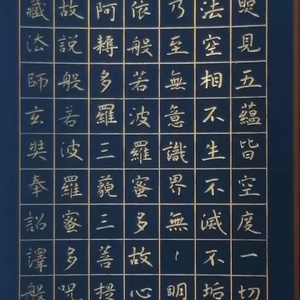 照見五蘊皆空度一切
法空相不生不滅不垢
乃至無意識界無丶明
依般若波羅蜜多故心
阿耨多羅三藐三菩提
故說般若波羅蜜多咒
藏法師玄奘奉詔譯般